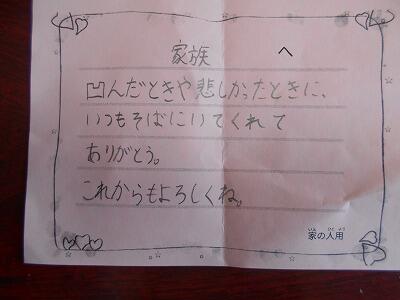 家族 へ
凹んだときや悲しかったときに、
いつもそばにいてくれて
ありがとう。
これからもよろしくね。
家の人用